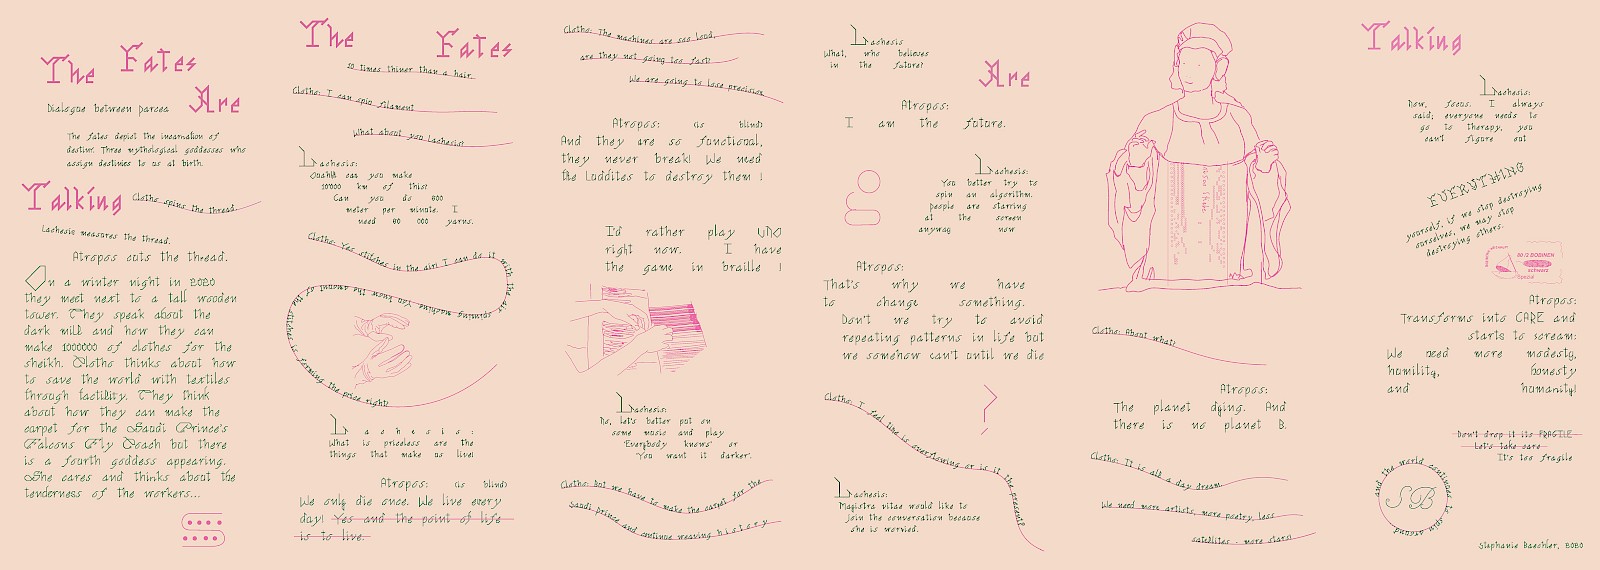 The Fates
Are
Dialogue between parcea
The fates depict the incarnation of
destiny. Three mythological goddesses who
assign destinies to us at birth.
Talking
Clotho spins the thread.
Lachesis measures the thread.
Atropos cuts the thread.
On a winter night in 2020
they meet next to a tall wooden
tower. They speak about the
dark mill and how they can
make 1000000 of clothes for the
sheikh. Clotho thinks about how
to save the world with textiles
through tactility. They think
about how they can make the
carpet for the Saudi Prince's
Falcons Fly Coach but there
is a fourth goddess appearing.
She cares and thinks about the
tenderness of the workers...
The Fates
10 times thiner than a hair.
Clotho: I can spin filament
What about you Lachesis?
Lachesis:
Ouahh! can you make
10'000 km of this?
Can you do 800
meter per minute. I
need 80 000 yarns.
Clotho: Yes stitches in the air! I can do it with the air
spinning machine. You know the amont of the
stitches is forming the price right?
Lachesis:
What is priceless are the
things that make us live!
Atropos: (is blind)
We only die once. We live every
day! Yes and the point of life
is to live.
Clotho: The machines are soo loud,
are they not going too fast?
We are going to lose precision.
Atropos: (is blind)
And they are so functional,
they never break! We need
the Luddites to destroy them !
I'd rather play UNO
right now. I have
the game in braille !
Lachesis:
No, let's better put on
some music and play
"Everybody knows" or
You want it darker.
Clotho: But we have to make the carpet for the
Saudi prince and continue weaving history
Lachesis
What, who believes
in the future?
Are
Atropos:
I am the future.
Lachesis:
You better try to
spin an algorithm.
people are starring
at the screen
anyway now
Atropos:
That's why we have
to change something.
Don't we try to avoid
repeating patterns in life but
we somehow can't until we die
Clotho: I feel like is overflowing or is it the present?
Lachesis:
Magistra vitae would like to
join the conversation because
she is worried.
Clotho: About what?
Atropos:
The planet dying. And
there is no planet B.
Clotho: It is all a day dream.
We need more artists, more poetry, less
satellites - more stars!
Talking
Lachesis:
Now, focus. I always
said; everyone needs to
go to therapy, you
can't figure out
EVERYTHING
yourself. if we stop destroying
ourselves, we may stop
destroying others.
80/2 BOBINEN
schwarz
Spezial
Atropos:
Transforms into CARE and
starts to scream:
We need more modesty,
humility, honesty
and humanity!
Don't drop it its FRAGILE
Let's take care
It's too fragile
and the world continues to spin around
SB
Stephanie Baechler, 2020